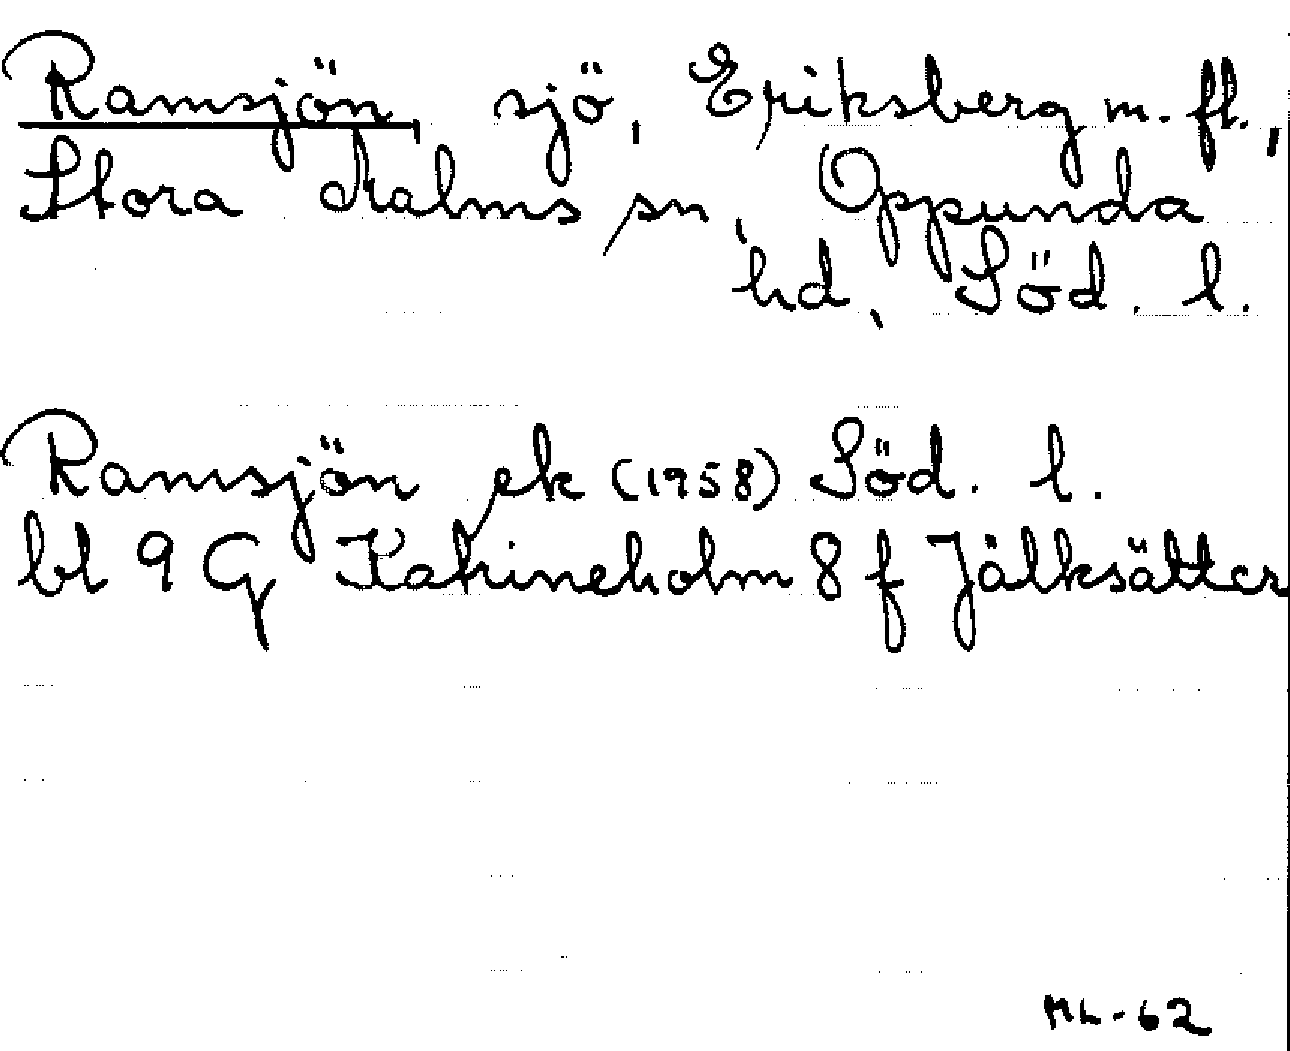 Ramsjön, sjö, Eriksberg m. fl.,
Stora Malms sn, Oppunda
hd, Söd. l.
Ramsjön ek (1958) Söd. l.
bl 9 G Katrineholm 8 f Jälksätter
ML-62